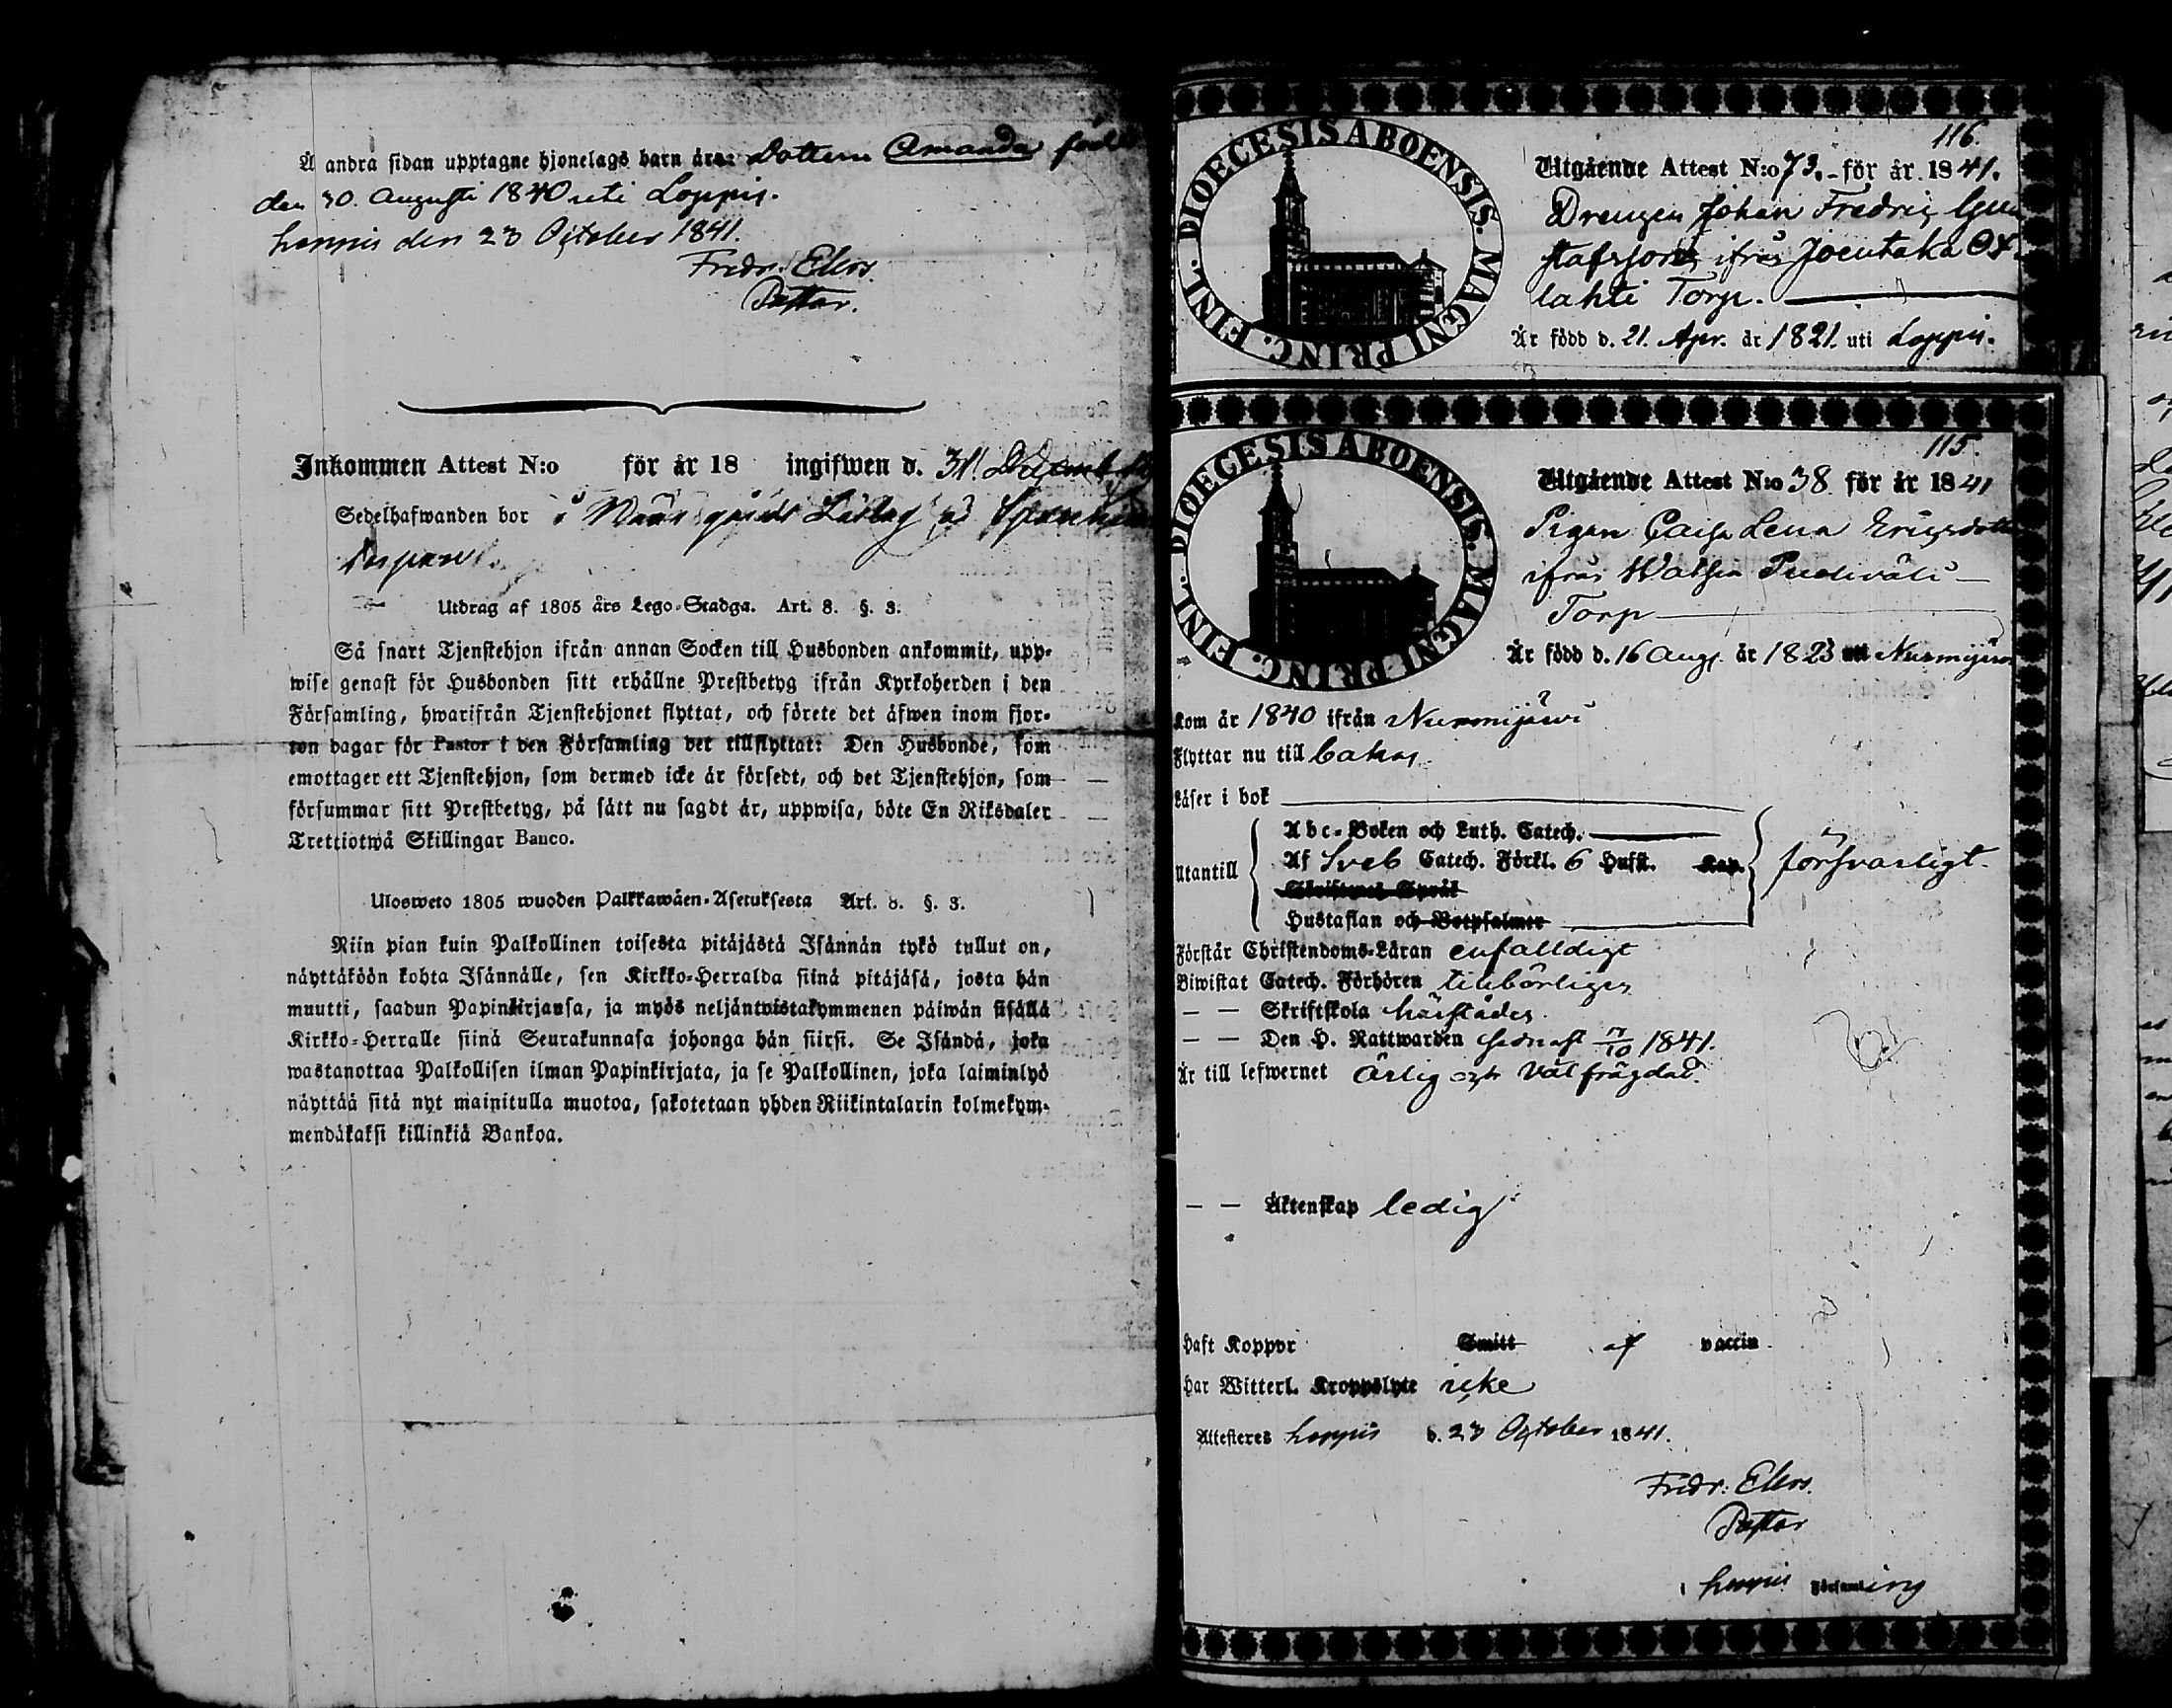 Å andra sidan upptagne hjonelags barn äro: Dottern Amanda född
den 30. Augusti 1840 uti Loppis.
Loppis den 23 October 1841.
Fredr: Ekros.
Pastor.
Inkommen Attest N:o för år 18 ingifwen d. 31 Decemb.
Sedelhafwanden bor å
Utdrag af 1805 års Lego-Stadga. Art. 8. §. 3.
Så snart Tjenstehjon ifrån annan Socken till Husbonden ankommit, upp-
wise genast för Husbonden sitt erhållne Prestbetyg ifrån Kyrkoherden i den
Församling, hwarifrån Tjenstehjonet flyttat, och förete det äfwen inom fjor-
ton dagar för Pastor i den Församling det tillflyttat: Den Husbonde, som
emottager ett Tjenstehjon, som dermed icke är försedt, och det Tjenstehjon, som
försummar sitt Prestbetyg, på sätt nu sagdt är, uppwisa, böte En Riksdaler
Trettiotwå Skillingar Banco.
Ulosweto 1805 wuoden Palkkawäen-Asetuksesta Art. 8. §. 3.
Niin pian kuin Palkollinen toisesta pitäjästä Isännän tykö tullut on,
näyttäköön kohta Isännälle, sen Kirkko-Herralda siinä pitäjäsä, josta hän
muutti, saadun Papinkirjansa, ja myös neljäntoistakymmenen päiwän sisällä
Kirkko-Herralle siinä Seurakunnasa johonga hän siirsi. Se Isändä, joka
wastanottaa Palkollisen ilman Papinkirjata, ja se Palkollinen, joka laiminlyö
näyttää sitä nyt mainitulla muotoa, sakotetaan yhden Riikintalarin kolmekym-
mendäkaksi killinkiä Bankoa.
116.
DIOECESIS ABOENSIS. MAGNI PRINC. FINL.
Utgående Attest N:o 73. för år 1841.
Drengen Johan Fredric Gus
tafsson ifrån Joentaka
lahti Torp.
Är född d. 21. Apr. år 1821. uti Loppis.
115.
DIOECESIS ABOENSIS. MAGNI PRINC. FINL.
Utgående Attest N:o 38 för år 1841
Pigan Caisa Lena Ericsdotter
ifrån
Torp
Är född d. 16 Aug. år 1823 uti Nurmijärvi
Kom år 1840 ifrån Nurmijärvi
Flyttar nu till
Läser i bok
Abc-Boken och Luth. Catech.
Utantill Af Sveb Catech. Förkl. 6 Hufst. Kap. försvarligt
Skriftenes Språk
Hustaflan och Botpsalmer
Förstår Christendoms-Läran enfalldigt
Biwistat Catech. Förhören tillbörligen
— — Skriftskola härstädes.
— — Den H. Nattwarden sednast 17/10 1841.
Är till lefwernet Ärlig och välfrägdad.
— — Äktenskap ledig
Haft Koppor Smitt af vaccin.
Har Witterl. Kroppslyte icke
Attesteres Loppis d. 23 October 1841.
Fredr: Ekros.
Pastor
i Loppis Församling